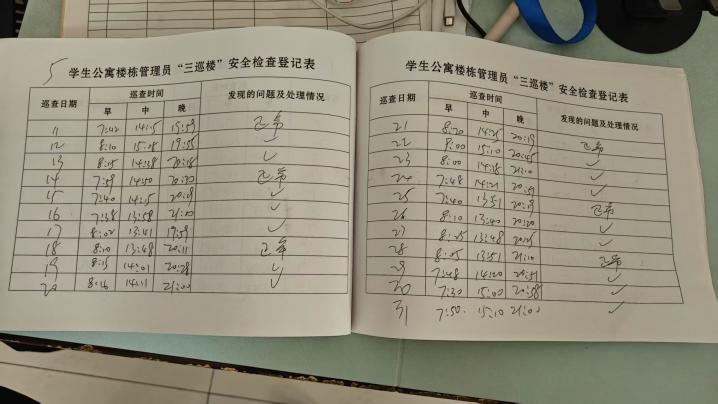 5
学生公寓楼栋管理员“三巡楼”安全检查登记表
巡查日期 巡查时间 发现的问题及处理情况
早 中 晚
11 7:42 14:15 19:59 正常
12 8:10 15:08 19:55 ✓
13 8:05 14:38 20:18 ✓
14 7:59 14:50 20:30 正常
15 7:40 14:15 20:19 ✓
16 7:38 13:58 21:10 ✓
17 8:02 13:41 19:59 ✓
18 8:10 13:48 20:11 正常
19 8:15 14:01 20:28 ✓
20 8:16 14:11 21:00 ✓
学生公寓楼栋管理员“三巡楼”安全检查登记表
巡查日期 巡查时间 发现的问题及处理情况
早 中 晚
21 8:20 14:25 20:19 正常
22 8:00 15:10 20:45 ✓
23 8:00 14:18 21:10 ✓
24 7:48 14:21 20:51 ✓
25 7:40 13:51 20:19 正常
26 8:10 13:40 20:20 ✓
27 8:25 13:48 20:25 ✓
28 8:05 13:51 21:10 正常
29 7:48 14:20 20:51 ✓
30 7:30 15:00 20:58 ✓
31 7:50 15:10 21:00 ✓